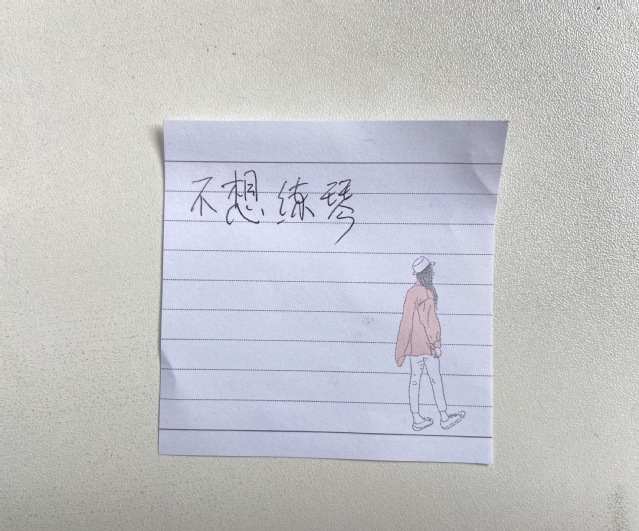 不想练琴